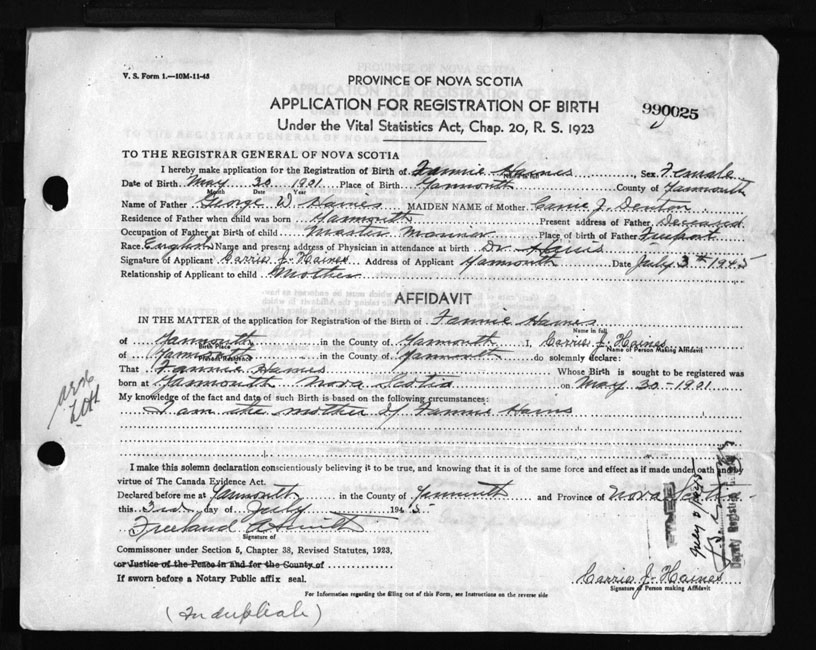 V. S. Form 1.—10M-11-43
PROVINCE OF NOVA SCOTIA
APPLICATION FOR REGISTRATION OF BIRTH
990025
Under the Vital Statistics Act, Chap. 20, R. S. 1923
TO THE REGISTRAR GENERAL OF NOVA SCOTIA
I hereby make application for the Registration of Birth of Fannie Haines, Sex Female
Date of Birth May 30 1901 Place of Birth Yarmouth County of Yarmouth
Month Date Year
Name of Father George W. Haines MAIDEN NAME of Mother Carrie J. Denton
Residence of Father when child was born Yarmouth Present address of Father Deceased
Occupation of Father at Birth of child Master Mariner Place of birth of Father Freeport
Race English Name and present address of Physician in attendance at birth Dr.
Signature of Applicant Carrie J. Haines Address of Applicant Yarmouth Date July 3rd 1945
Relationship of Applicant to child Mother
AFFIDAVIT
IN THE MATTER of the application for Registration of the Birth of Fannie Haines
Name in full
of Yarmouth in the County of Yarmouth I, Carrie J. Haines
Birth Place Name of Person Making Affidavit
of Yarmouth in the County of Yarmouth do solemnly declare:
Present Residence
That Fannie Haines Whose Birth is sought to be registered was
born at Yarmouth Nova Scotia on May 30-1901
My knowledge of the fact and date of such Birth is based on the following circumstances:
I am the mother of Fannie Hains
I make this solemn declaration conscientiously believing it to be true, and knowing that it is of the same force and effect as if made under oath and by
virtue of The Canada Evidence Act.
Declared before me at Yarmouth in the County of Yarmouth and Province of Nova Scotia
this 3rd day of July 1945
Freeland
Signature of
Commissioner under Section 5, Chapter 38, Revised Statutes, 1923,
or Justice of the Peace in and for the County of
If sworn before a Notary Public affix seal.
Carrie J. Haines
Signature of Person making Affidavit
For Information regarding the filling out of this Form, see Instructions on the reverse side
(In duplicate)
Deputy Registrar